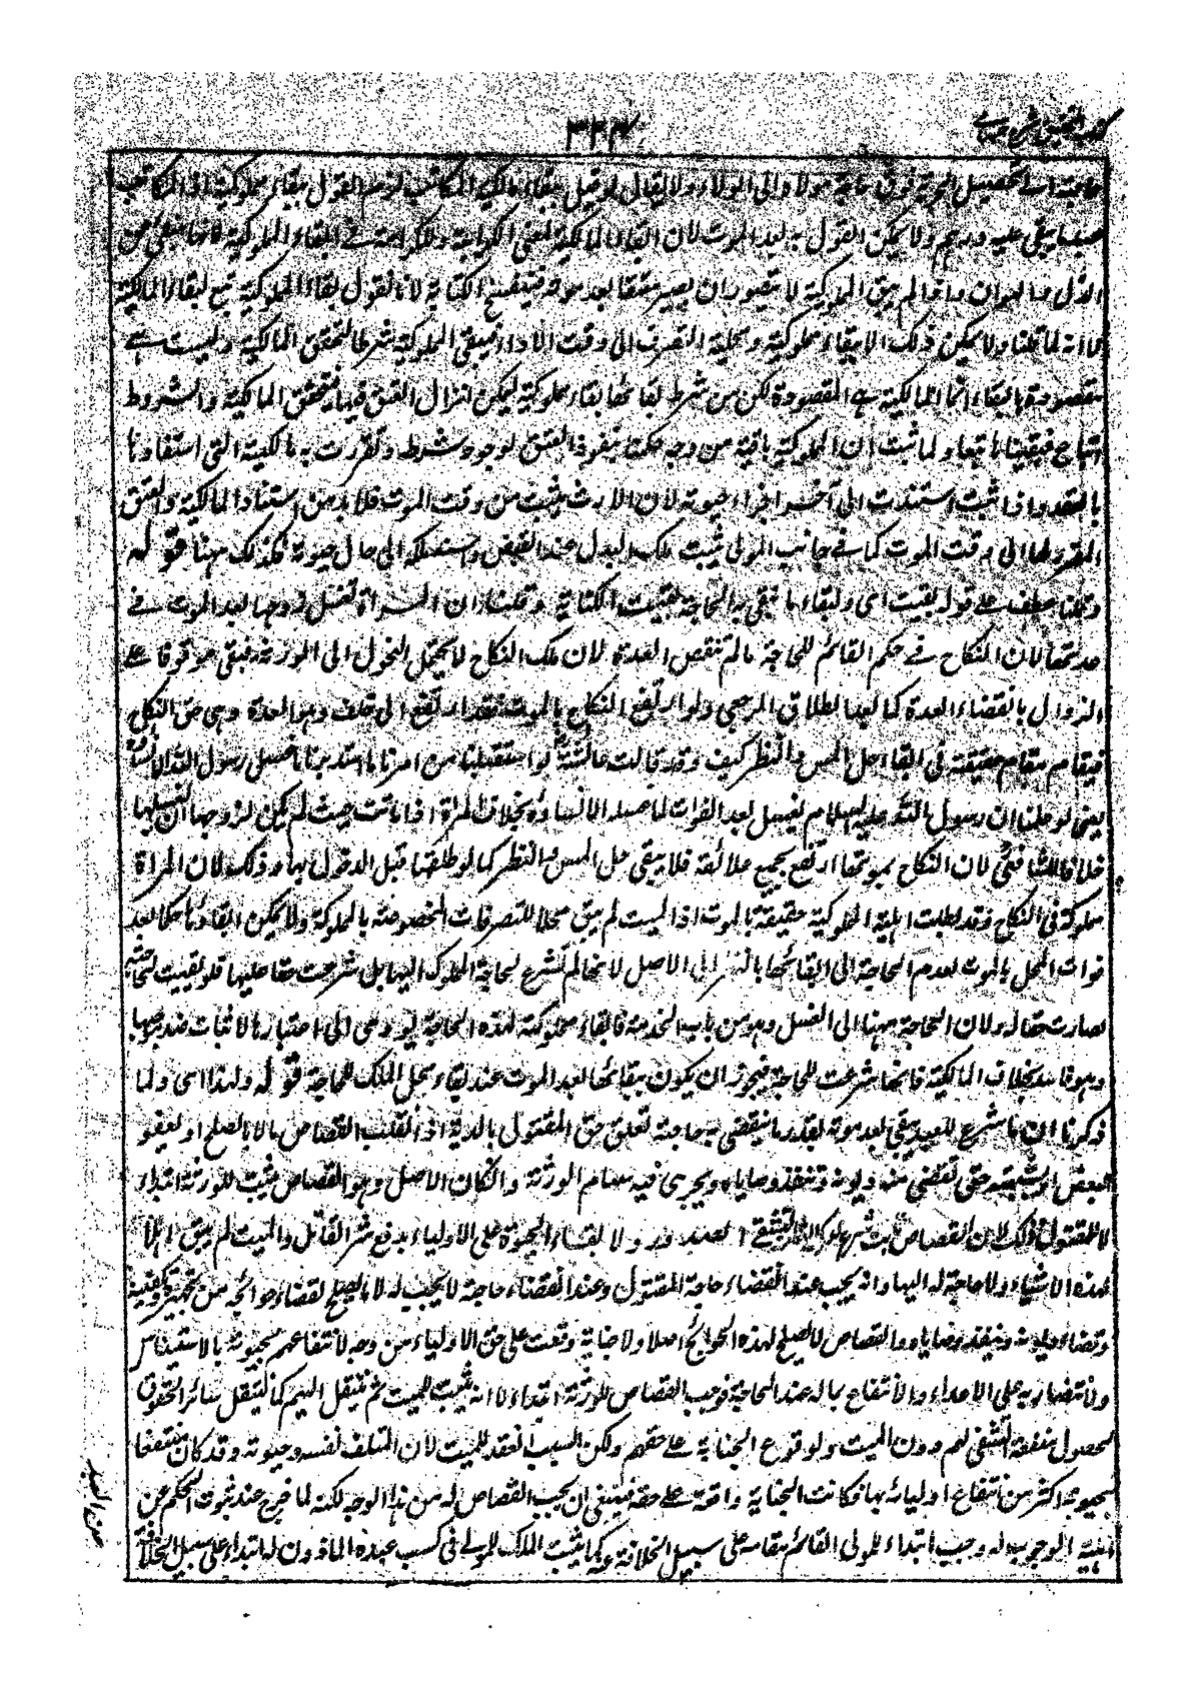 ٣٢٤
حاجته الى تحصيل الحرية فوق حاجة مولاه الى الولاء ولا يقال لو قيل ببقاء مالكية المكاتب لزم القول ببقاء مملوكيته اذ المكاتب
عبد ما بقى عليه درهم ولا يمكن القول به بعد الموت لان ابقاء المالكية لمعنى الكرامة ولا كرامة فى ابقاء المملوكية لانها تنبئ عن
الذل والهوان واذا لم يبق المملوكية لا يتصور ان يصير معتقا بعد موته فينفسخ الكتابة لانا نقول بقاء المملوكية تبع لبقاء المالكية
لما انه لما قلنا ولا يمكن ذلك الا ببقاء مملوكيته ومحلية التصرف الى وقت الاداء فيبقى المملوكية شرطا لتحقق المالكية وليست هى
مقصودة بالبقاء انما المالكية هى المقصودة لكن من شرط بقائها بقاء مملوكيته ليمكن انزال العتق فيها فيتحقق المالكية والشروط
اتباع فبقيناها تبعا ولما ثبت ان المملوكية باقية من وجه حكمنا بنفوذ العتق لوجود شرطه وتقررت به مالكيته التى استفادها
بالعقد واذا ثبت استندت الى آخر اجزاء حيوته لان الارث يثبت من وقت الموت فلا بد من استناد المالكية والعتق
المقرر لها الى وقت الموت كما فى جانب المولى ثبت ملك البدل عند القبض واستند ملكه الى حال حيوته فكذلك ههنا قوله
وقلنا عطف على قوله بقيت اى ولبقاء ما ينقضى به الحاجة بقيت الكتابة وقلنا ان المرأة تغسل زوجها بعد الموت فى
عدتها لان النكاح فى حكم القائم للحاجة ما لم تنقض العدة لان ملك النكاح لا يحتمل التحول الى الورثة فبقى موقوفا على
الزوال بانقضاء العدة كما بعد الطلاق الرجعى ولو ارتفع النكاح بالموت فقد ارتفع الى خلف وهو العدة وهى حق النكاح
فيقام مقام حقيقته فى ابقاء حل المس والنظر كيف وقد قالت عائشة لو استقبلنا من امرنا ما استدبرنا ما غسل رسول الله الا نساؤه
يعنى لو علمنا ان رسول الله عليه السلام يغسل بعد الوفات لما غسله الا نساؤه بخلاف المرأة اذا ماتت حيث لم يكن لزوجها ان يغسلها
خلافا للشافعى لان النكاح بموتها ارتفع بجميع علائقه فلا يبقى حل المس والنظر كما لو طلقها قبل الدخول بها وذلك لان المرأة
مملوكة فى النكاح وقد بطلت اهلية المملوكية حقيقة بالموت اذ الميت لم يبق محلا للتصرفات المخصوصة بالمملوكة ولا يمكن ابقاؤها حكما بعد
فوات المحل بالموت لعدم الحاجة الى ابقائها بالنظر الى الاصل لانها لم تشرع لحاجة المملوك اليها بل شرعت حقا عليها فلو بقيت لحاجتها
لصارت حقا له ولان الحاجة ههنا الى الغسل وهو من باب الخدمة فابقاء مملوكيته لهذه الحاجة يؤدى الى اعتبارها لاثبات ضد موجبها
وهو فاسد بخلاف المالكية فانها شرعت للحاجة فيجوز ان يكون بقائها بعد الموت عند بقاء محل الملك للحاجة قوله ولهذا اى ولما
ذكرنا ان ما شرع للعبد يبقى بعد موته بقدر ما ينقضى به حاجته تعلق حق المقتول بالدية اذا انقلب القصاص مالا بالصلح او بعفو
البعض او بشبهة حتى تقضى منه ديونه وتنفذ وصاياه ويجرى فيه سهام الورثة وان كان الاصل وهو القصاص يثبت للورثة ابتداء
لا للمقتول وذلك لان القصاص يثبت لدرك الثار لتشفى الصدور ولابقاء الحيوة على الاولياء بدفع شر القاتل والميت لم يبق اهلا
لهذه الاشياء ولا حاجة له اليها وانه يجب عند انقضاء حاجة المقتول وعند انقضاء حاجته لا يجب له الا ما يصلح لقضاء حوائجه من تجهيزه وتكفينه
وقضاء ديونه وتنفيذ وصاياه والقصاص لا يصلح لهذه الحوائج اصلا ولا جناية وقعت على حق الاولياء من وجه لانتفاعهم بحيوته بالاستيناس
والانتصار به على الاعداء والانتفاع بماله عند الحاجة فوجب القصاص للورثة ابتداء لا انه يثبت للميت ثم ينتقل اليهم كما ينتقل سائر الحقوق
لحصول منفعة التشفى لهم دون الميت ولوقوع الجناية على حقهم ولكن السبب انعقد للميت لان المتلف نفسه وحيوته وقد كان منتفعا
بحيوته اكثر من انتفاع اوليائه بها فكانت الجناية واقعة على حقه فينبغى ان يجب القصاص له من هذا الوجه لكنه لما خرج عند ثبوت الحكم عن
اهلية الوجوب له وجب ابتداء للولى القائم مقامه على سبيل الخلافة عنه كما يثبت الملك للمولى فى كسب عبده المأذون له ابتداء على سبيل الخلافة